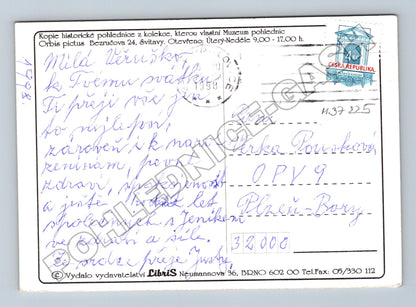 Kopie historické pohlednice z kolekce, kterou vlastní Muzeum pohlednic
Orbis pictus Bezručova 24, Svitavy. Otevřeno: Úterý-Neděle 9,00 - 17,00 h.
ČESKÁ REPUBLIKA
1998
1998
Milá Věruško
k Tvému svátku
Ti přeji vše jen
to nejlepší
zároveň i k
zdraví, spokojenost
a ještě let
společných s Jeníkem
ve zdraví a síle.
ze srdce přeje
H37225
Věrka
OPV 9
Plzeň - Bory
32000
POHLEDNICE-GASK
© Vydalo vydavatelství LibriS Neumannova 36, BRNO 602 00 Tel.Fax: 05/330 112